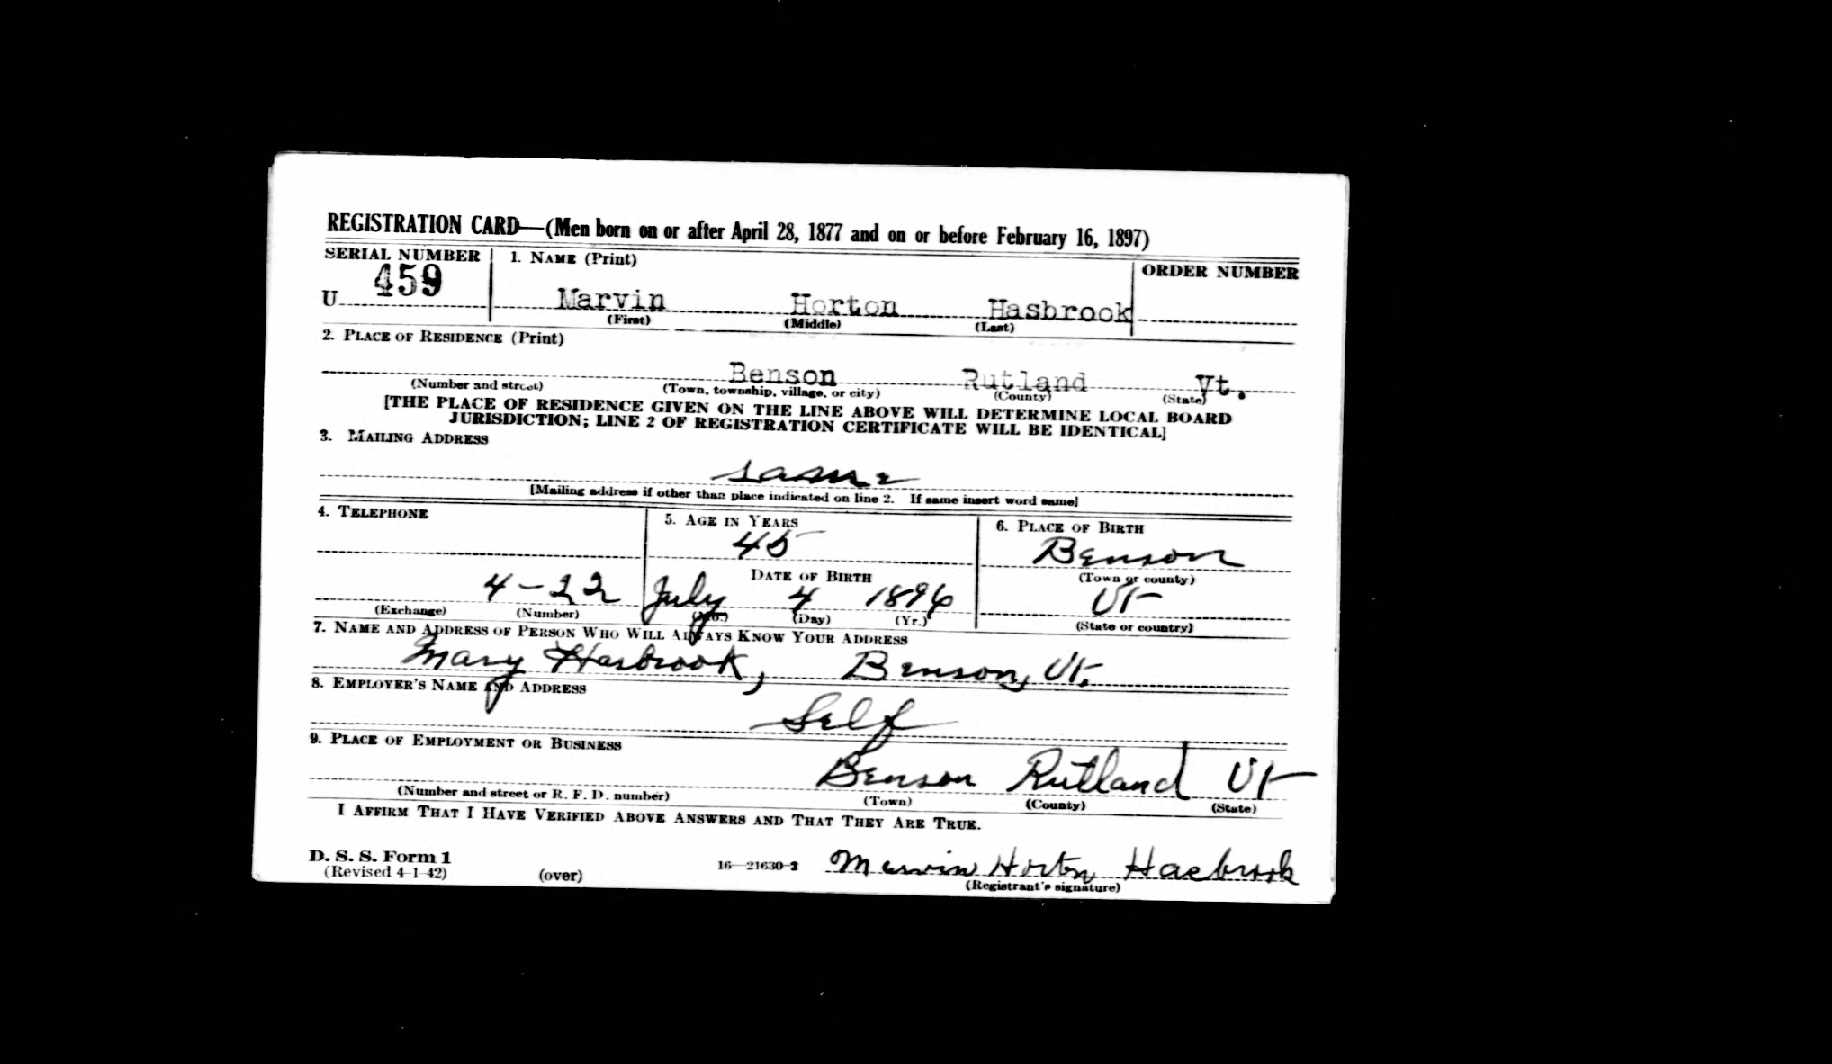 REGISTRATION CARD—(Men born on or after April 28, 1877 and on or before February 16, 1897)
SERIAL NUMBER
1. NAME (Print)
ORDER NUMBER
U 459
Marvin Horton Hasbrook
(First) (Middle) (Last)
2. PLACE OF RESIDENCE (Print)
Benson Rutland Vt.
(Number and street) (Town, township, village, or city) (County) (State)
[THE PLACE OF RESIDENCE GIVEN ON THE LINE ABOVE WILL DETERMINE LOCAL BOARD
JURISDICTION; LINE 2 OF REGISTRATION CERTIFICATE WILL BE IDENTICAL]
3. MAILING ADDRESS
same
[Mailing address if other than place indicated on line 2. If same insert word same]
4. TELEPHONE
5. AGE IN YEARS
6. PLACE OF BIRTH
45
Benson
DATE OF BIRTH
(Town or county)
4-22 July 4 1896
Vt
(Exchange) (Number) (Mo.) (Day) (Yr.)
(State or country)
7. NAME AND ADDRESS OF PERSON WHO WILL ALWAYS KNOW YOUR ADDRESS
Mary Hasbrook, Benson, Vt.
8. EMPLOYER'S NAME AND ADDRESS
Self
9. PLACE OF EMPLOYMENT OR BUSINESS
Benson Rutland Vt
(Number and street or R. F. D. number) (Town) (County) (State)
I AFFIRM THAT I HAVE VERIFIED ABOVE ANSWERS AND THAT THEY ARE TRUE.
D. S. S. Form 1
(Revised 4-1-42) (over) 16—21630-2 Marvin Horton Hasbrook
(Registrant's signature)